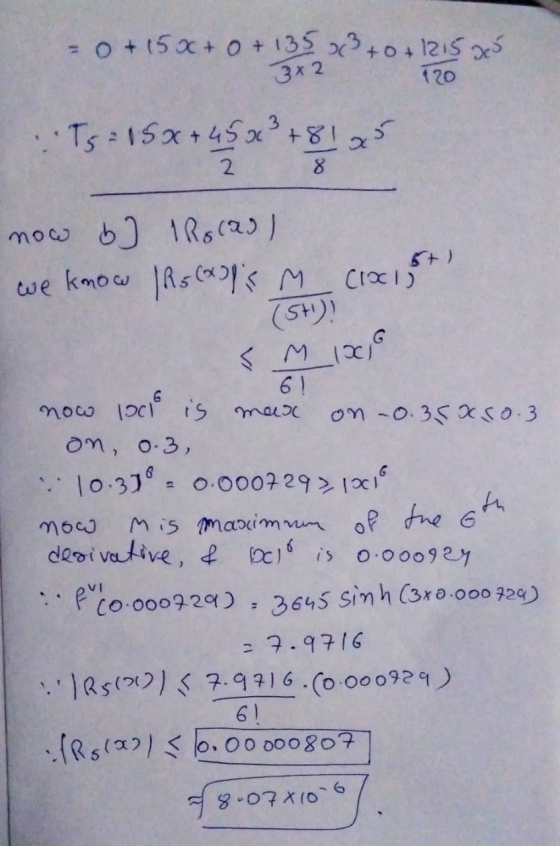 = 0 + 15x + 0 + 135/3×2 x³ + 0 + 1215/120 x⁵
∵ T₅ = 15x + 45/2 x³ + 81/8 x⁵
now b] |R₅(x)|
we know |R₅(x)| ≤ M/(5+1)! (|x|)⁵⁺¹
≤ M/6! |x|⁶
now |x|⁶ is max on -0.3 ≤ x ≤ 0.3
on, 0.3,
∵ |0.3]⁶ = 0.000729 ≥ |x|⁶
now M is maximum of the 6ᵗʰ
derivative, & |x|⁶ is 0.000924
∵ f^VI (0.000729) = 3645 sinh (3×0.000729)
= 7.9716
∵ |R₅(x)| ≤ 7.9716/6! . (0.000729)
∴ |R₅(x)| ≤ 0.00000807
≈ 8.07×10⁻⁶ .